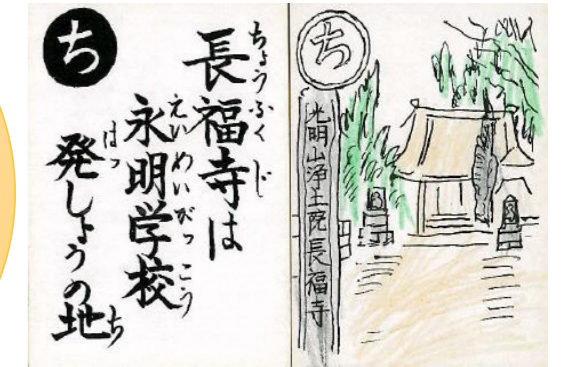 ち
長福寺は
ちょうふくじ
永明学校
えいめいがっこう
発しょうの地
はっ
ち
ち
光明山浄土院長福寺